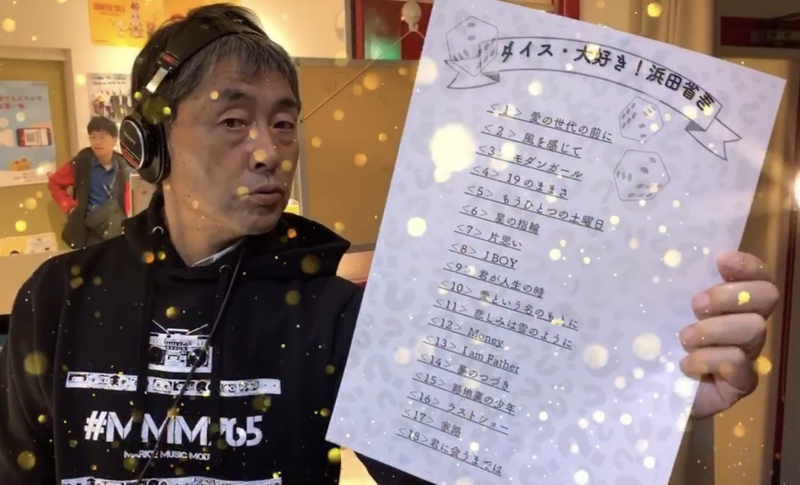 ダイス・大好き！浜田省吾
<1> 愛の世代の前に
<2> 風を感じて
<3> モダンガール
<4> 19のままさ
<5> もうひとつの土曜日
<6> 星の指輪
<7> 片思い
<8> J.BOY
<9> 君が人生の時
<10> 愛という名のもとに
<11> 悲しみは雪のように
<12> Money
<13> I am Father
<14> 夢のつづき
<15> 路地裏の少年
<16> ラストショー
<17> 家路
<18> 君に会うまでは
#MMMM765
MUSIC MODE